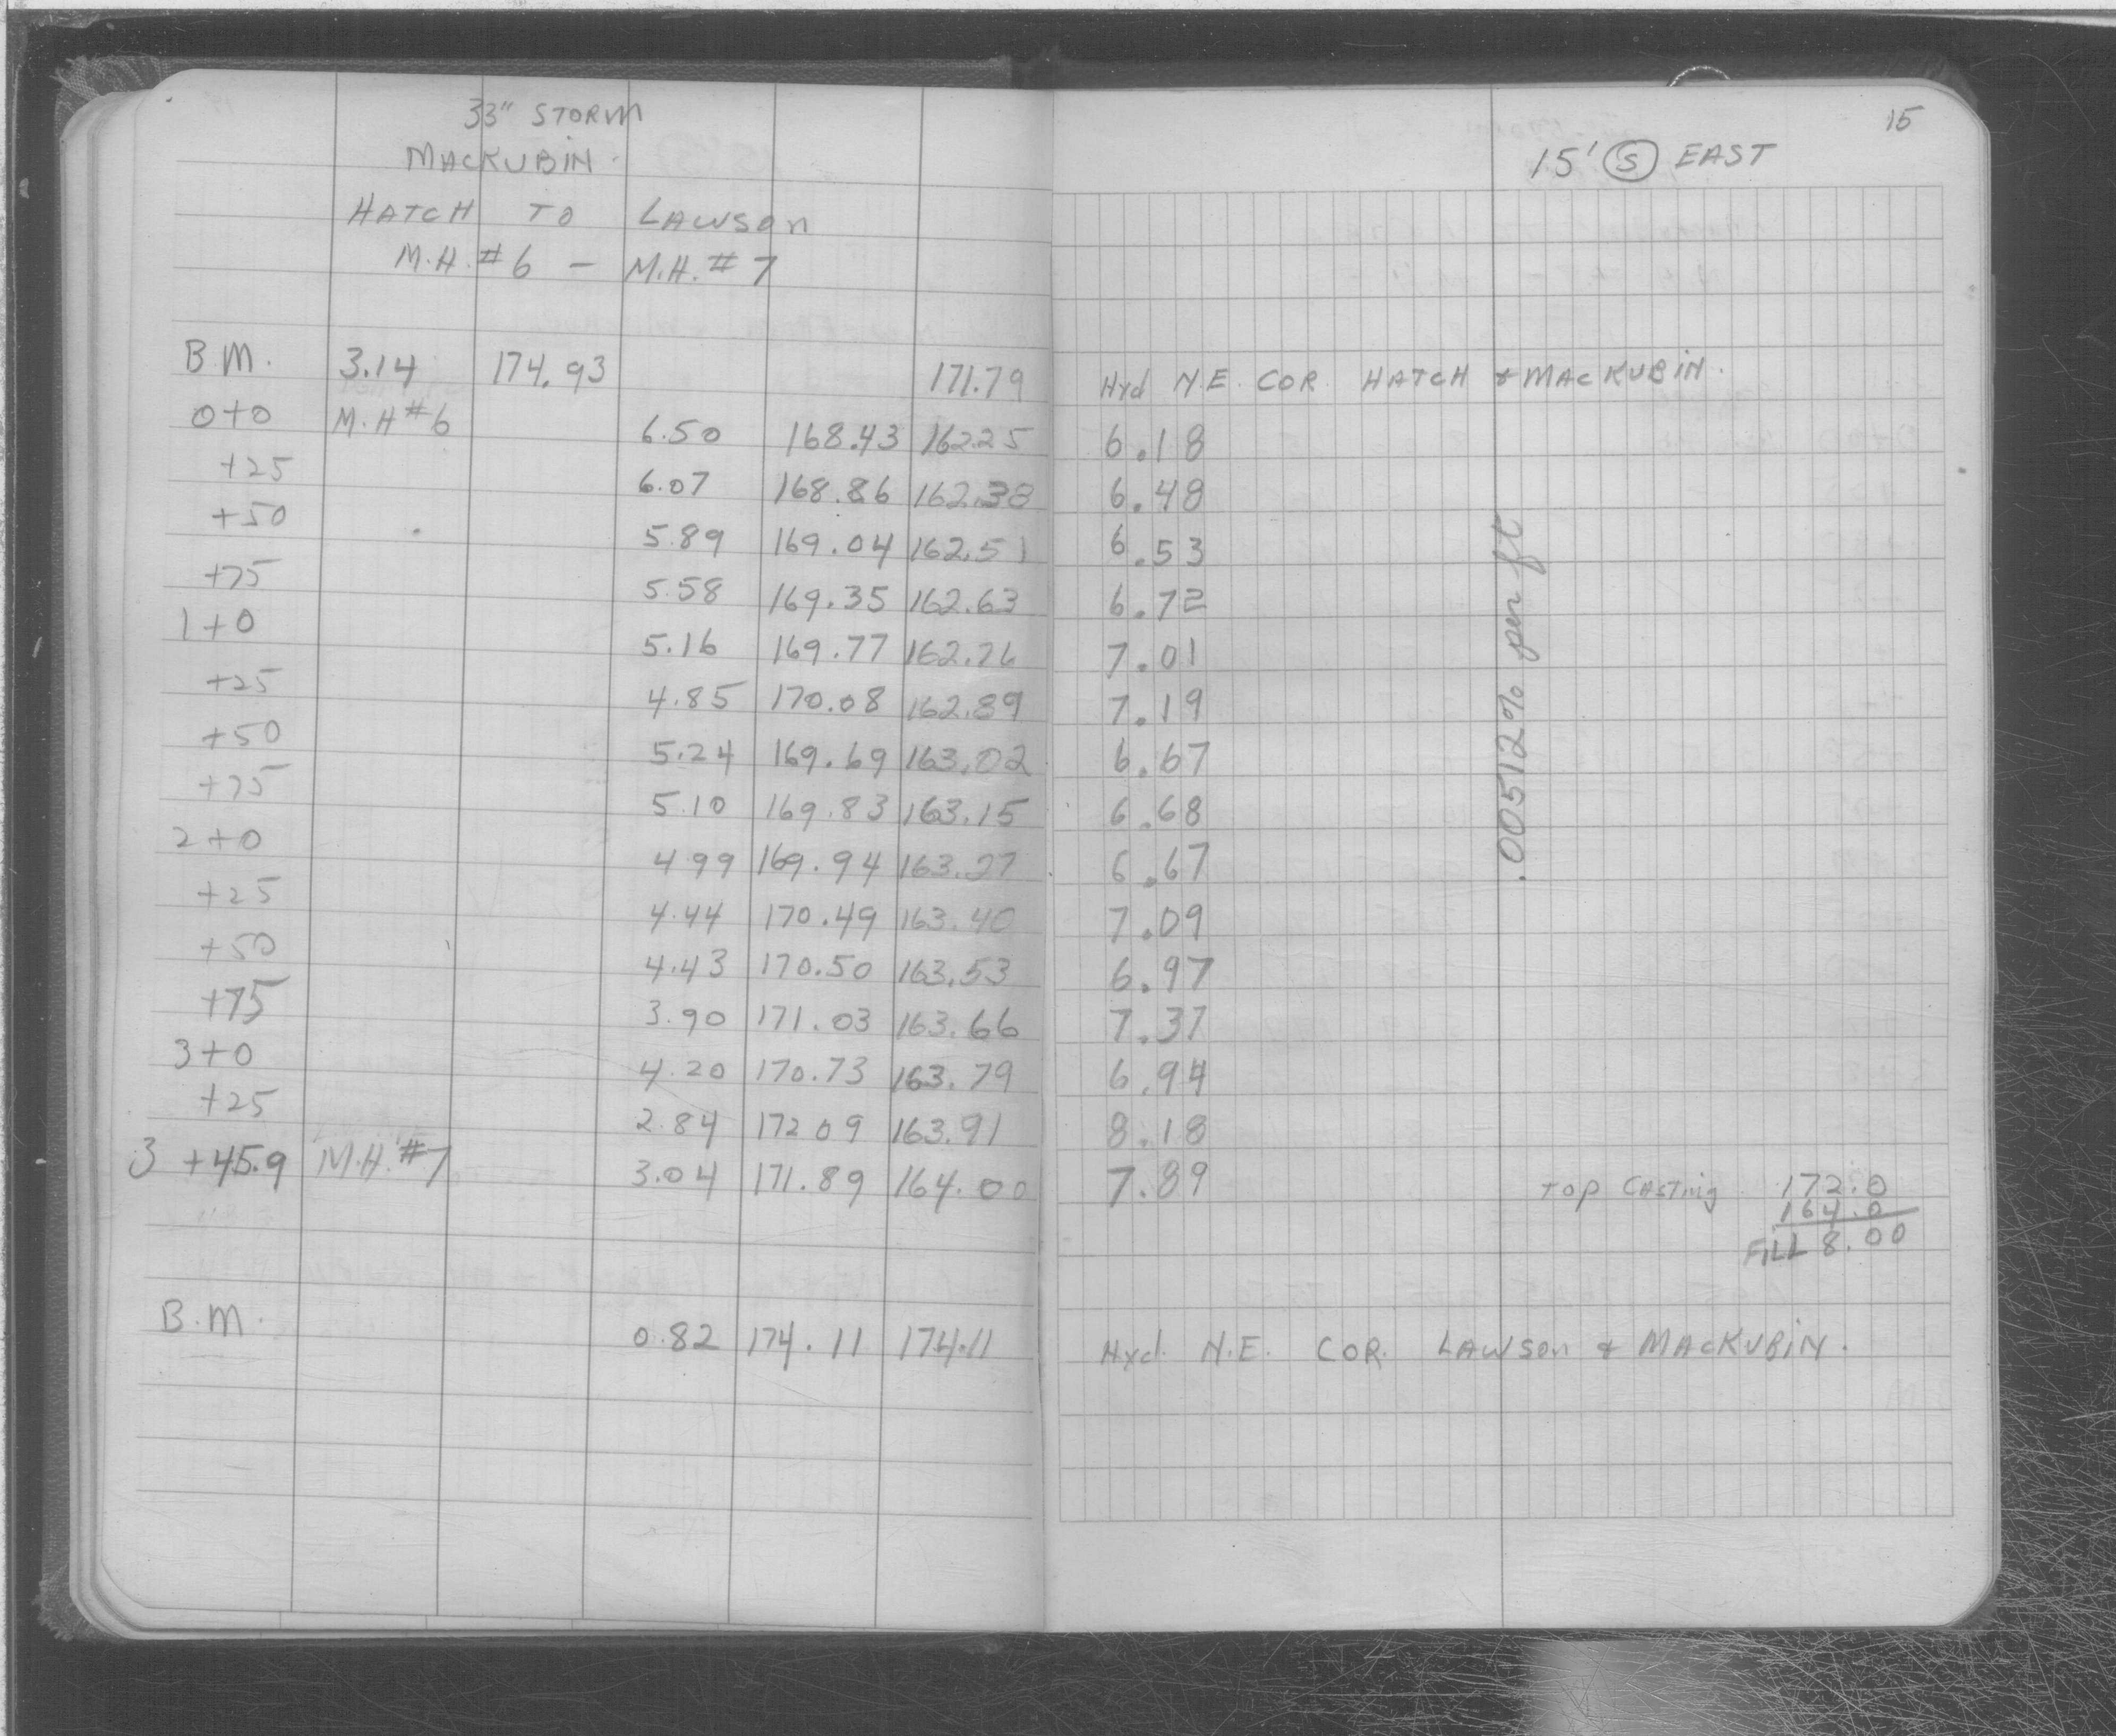 33" STORM
MACKUBIN.
HATCH TO LAWSON
M.H. #6 - M.H. #7
15
15' Ⓢ EAST
B.M. 3.14 174.93 171.79 Hyd N.E. COR. HATCH & MACKUBIN.
0+0 M.H #6 6.50 168.43 162.25 6.18
+25 6.07 168.86 162.38 6.48
+50 5.89 169.04 162.51 6.53
+75 5.58 169.35 162.63 6.72
1+0 5.16 169.77 162.76 7.01
+25 4.85 170.08 162.89 7.19
+50 5.24 169.69 163.02 6.67
+75 5.10 169.83 163.15 6.68
2+0 4.99 169.94 163.27 6.67
+25 4.44 170.49 163.40 7.09
+50 4.43 170.50 163.53 6.97
+75 3.90 171.03 163.66 7.37
3+0 4.20 170.73 163.79 6.94
+25 2.84 172 09 163.91 8.18
3 +45.9 M.H. #7 3.04 171.89 164.00 7.89
.00512% per ft
TOP CASTING 172.0
164.0
FILL 8.00
B.M. 0.82 174.11 174.11 Hyd. N.E. COR. LAWSON & MACKUBIN.